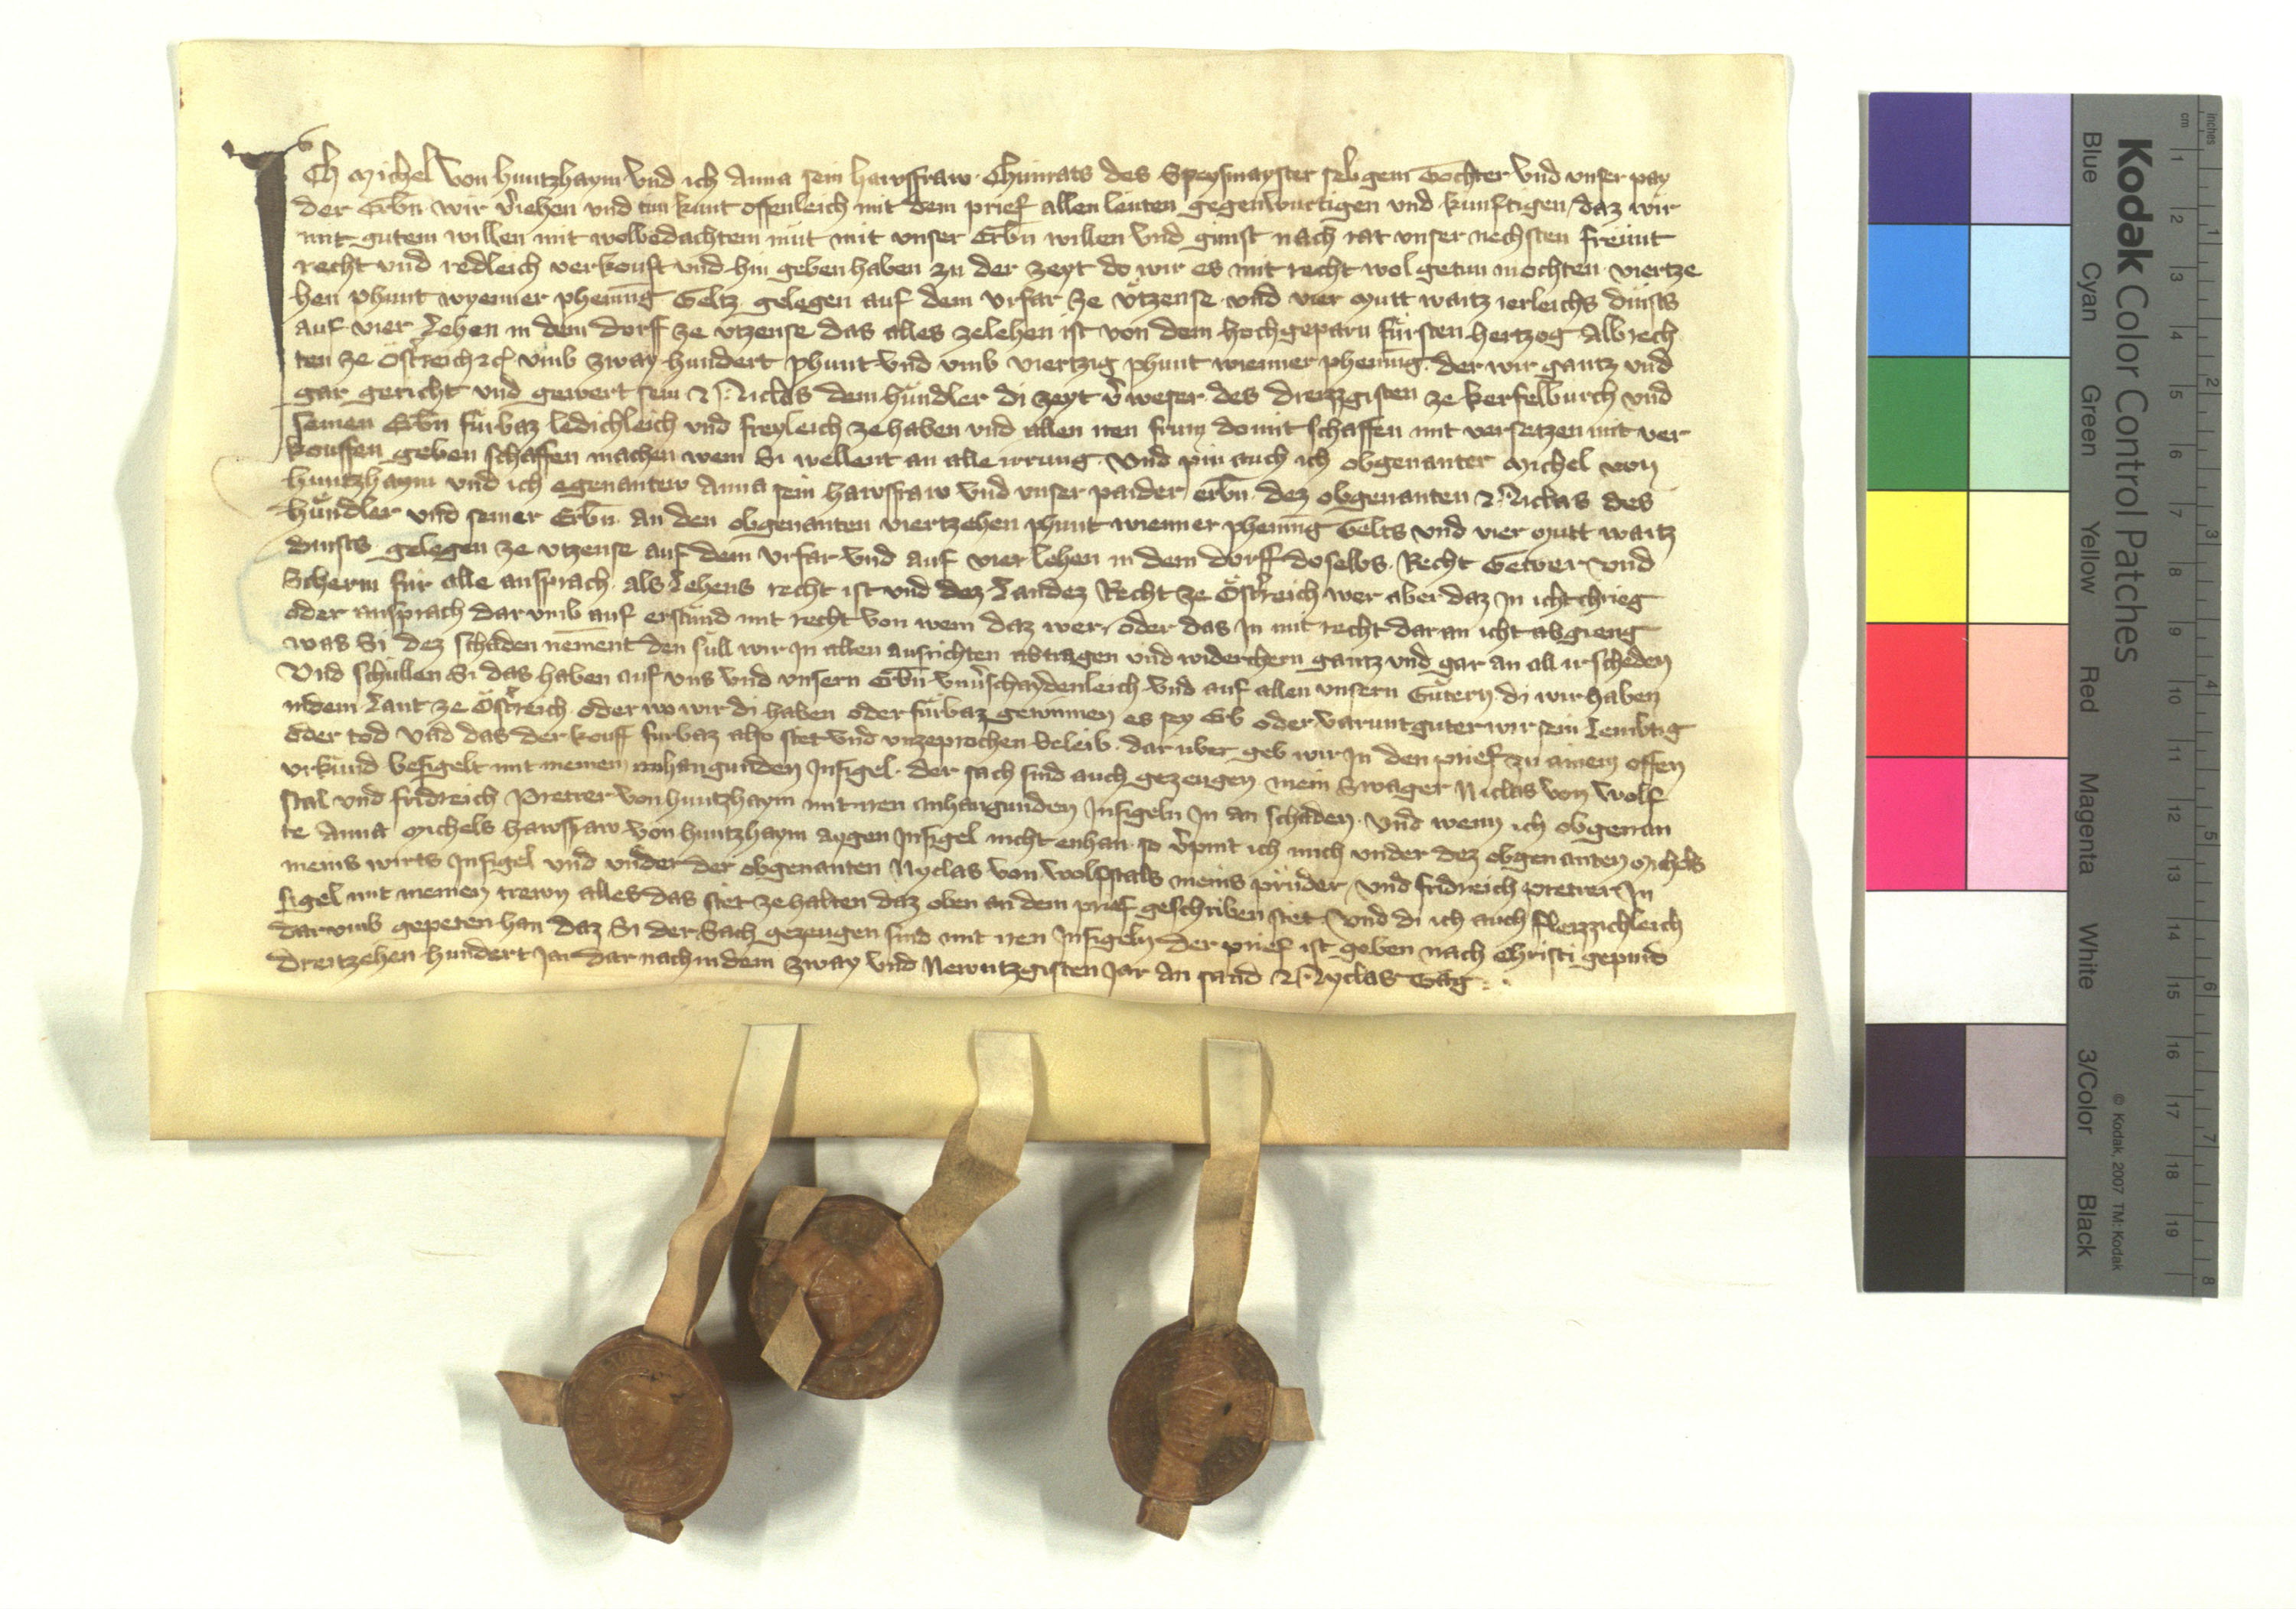 Ich Michel von Huntzhaym vnd ich Anna sein hawsfraw Chunrats des Speysmayster selbgem Tochter vnd vnser pay
der Erbn wir v̂iehen vnd tun kunt offenleich mit dem prief allen leuten gegenwurtigen vnd kunftigen daz wir
mit gutem willen mit wolbedachtem mut mit vnser Erbn willen vnd gunst nach rat vnser nechsten freunt
recht vnd redleich verkouft vnd hin geben haben zu der zeyt do wir es mit recht wol getun mochten viertze
hen phunt wyenner phennīg Geltz gelegen auf dem vrfar ze vtzense vnd vier Mutt waitz ierleichs dinsts
auf vier Lehen in dem dorff ze vtzense das alles ze lehen ist von dem hochgeparn fürsten hertzog Albrech
ten ze Ostreich etc vmb zway hundert phunt vnd vmb viertzig phunt wienner phennīg der wir gantz vnd
gar gericht vnd gewert sein Niclas dem hundler di zeyt v̂weser des dreizzgisten ze kerfelburch vnd
seinen Erbn furbaz ledichleich vnd freyleich ze haben vnd allen iren frum domit schaffen mit versetzen mit ver
kouffen geben schaffen machen wem Si wellent an alle irrung Vnd pin auch ich obgenanter Michel von
Huntzhaym vnd ich egenantew Anna sein hawsfraw vnd vnser paider erbn dez obgenanten Niclas des
hundler vnd seiner Erbn an den obgenanten viertzehen phunt wienner phennīg Gelts vnd vier Mutt waitz
dinsts gelegen ze vtzense auf dem vrfar vnd auf vier lehen in dem dorff doselbs Recht Gewer vnd
Scherm fur alle ansprach als Lehens recht ist vnd dez Landez Recht ze Ostreich wer aber daz In icht chrieg
oder ansprach dar vmb auf erstund mit recht von wem daz wer oder das In mit recht dar an icht abgieng
was Si dez schaden nement den sull wir In allen ausrichten abtragen vnd widerchern gantz vnd gar an all ir scheden
Vnd schullen Si das haben auf vns vnd vnsern Erbn vnu̔schaydenleich vnd auf allen vnsern Gutern di wir haben
in dem Lant ze Ostreich oder wo wir di haben oder furbaz gewinnen es sey Erb oder varunt guter wir sein lembtig
oder tod Vnd das der kouff furbaz also stet vnd vnzeprochen beleib dar vber geb wir In den prief zu ainem offen
vrkund besigelt mit meinem anhangunden Insigel der sach sind auch gezeugen mein Swager Niclas von Wolf
stal vnd fridreich Pretrer von huntzhaym mit iren anhangunden Insigeln In an schaden Vnd wenn ich obgenan
te Anna Michels hawsfraw von huntzhaym aygen Insigel nicht enhan so v̂pint ich mich vnder dez obgenanten Michels
meins wirts Insigel vnd vnder der obgenanten Nyclas von Wolfstals meins pruder vnd fridreich pretrer In
sigel mit meinen trewn alles das stet ze halten daz oben an dem prief geschriben stet Vnd di ich auch fleizzichleich
dar vmb gepeten han daz Si der Sach gezeugen sind mit iren Insigeln der prief ist geben nach Christi gepurd
dreitzehen hundert Jar dar nach in dem zway vnd Newntzgisten Jar An sand Nyclas Tag
Kodak Color Control Patches
Blue Cyan Green Yellow Red Magenta White 3/Color Black
© Kodak, 2007 TM: Kodak
Inches 1 2 3 4 5 6 7 8
cm 1 2 3 4 5 6 7 8 9 10 11 12 13 14 15 16 17 18 19